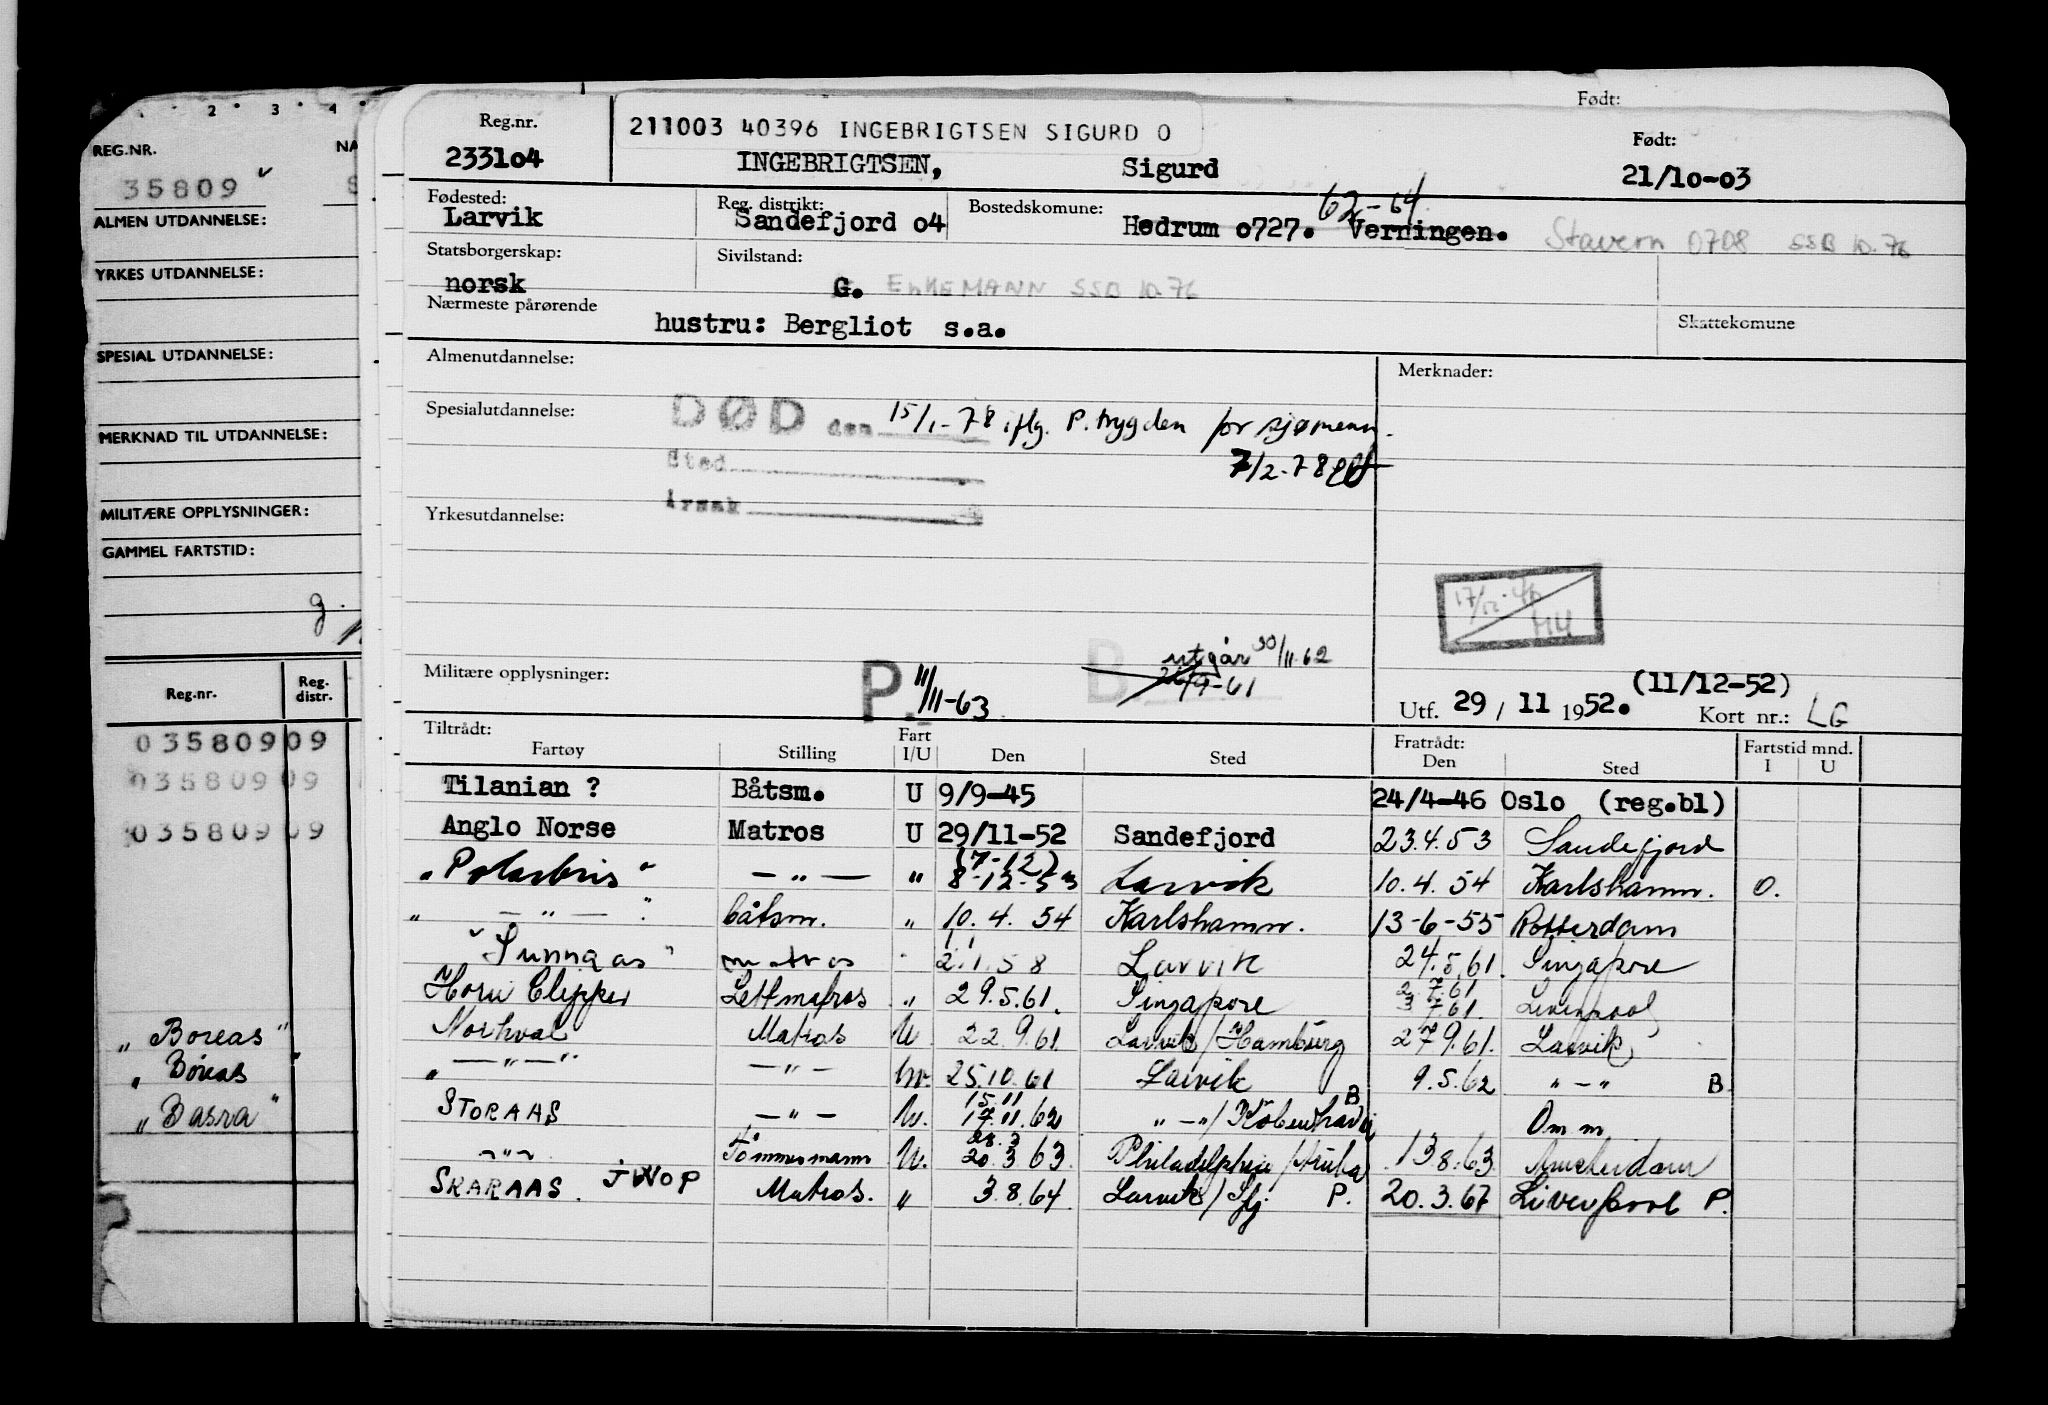 2 3 4
REG.NR. NA
35809
ALMEN UTDANNELSE:
YRKES UTDANNELSE:
SPESIAL UTDANNELSE:
MERKNAD TIL UTDANNELSE:
MILITÆRE OPPLYSNINGER:
GAMMEL FARTSTID:
g.
Reg.nr. Reg. distr.
03580909
03580909
03580909
„ Boreas "
„ Boreas "
„ Basra "
Født:
Reg.nr. 211003 40396 INGEBRIGTSEN SIGURD O Født:
233104 INGEBRIGTSEN, Sigurd 21/10-03
Fødested: Reg. distrikt: Bostedskomune: 62-64
Larvik Sandefjord 04 Hedrum 0727. Verningen. Stavern 0708 SSB 10.76
Statsborgerskap: Sivilstand:
norsk G. ENKEMANN SSB 10.76
Nærmeste pårørende
hustru: Bergliot s.a. Skattekomune
Almenutdannelse: Merknader:
Spesialutdannelse: DØD den 15/1-78 iflg. P. trygden for sjømenn.
Sted 7/2-78
Årsak
Yrkesutdannelse:
17/12-76
Militære opplysninger: P 11/11-63 B utgår 30/11.62
26/9-61
(11/12-52)
Utf. 29/11 1952. Kort nr.: LG
Tiltrådt: Fart Fratrådt: Fartstid mnd.
Fartøy Stilling I/U Den Sted Den Sted I U
Tilanian ? Båtsm. U 9/9-45 24/4-46 Oslo (reg.bl)
Anglo Norse Matros U 29/11-52 Sandefjord 23.4.53 Sandefjord
(7-12)
„ Polarbris " — " — " 8-12-53 Larvik 10.4.54 Karlshamn. 0.
„ — " — " båtsm. „ 10.4.54 Karlshamn. 13-6-55 Rotterdam
" Sunnaas " matros " 2.1.58 Larvik 24.5.61. Singapore
Horn Clipper Lettmatros „ 29.5.61. Singapore 3.7.61. Liverpool
Norhval Matros U 22.9.61 Larvik/Hamburg 27.9.61. Larvik
„ — " — " — " — U. 25.10.61 Larvik 9.5.62 " — " B
15.11 B
STORAAS — " — U. 17.11.62 " — "/København Om m
28.3
— " — Tømmermann U. 20.3.63. Philadelphia/Aruba 13.8.63 Amsterdam
SKARAAS. JWOP Matros. „ 3.8.64. Larvik/Sfj P. 20.3.67 Liverpool P.